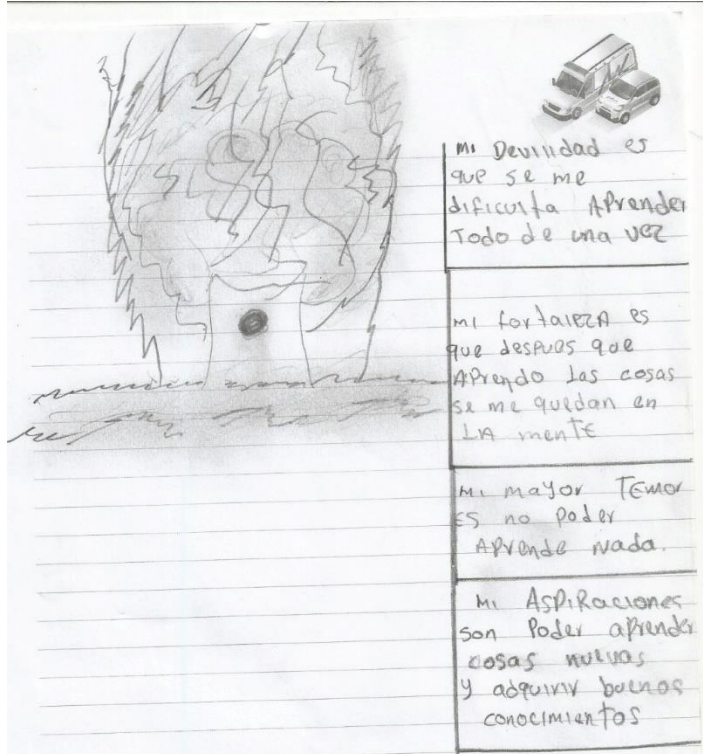 Mi Devilidad es
que se me
dificulta Aprender
Todo de una vez
mi fortaleza es
que despues que
Aprendo Las cosas
se me quedan en
LA mente
Mi mayor Temor
es no poder
Aprende Nada.
Mi AspiRaciones
son Poder aprender
cosas nuevas
y adquirir buenos
conocimientos